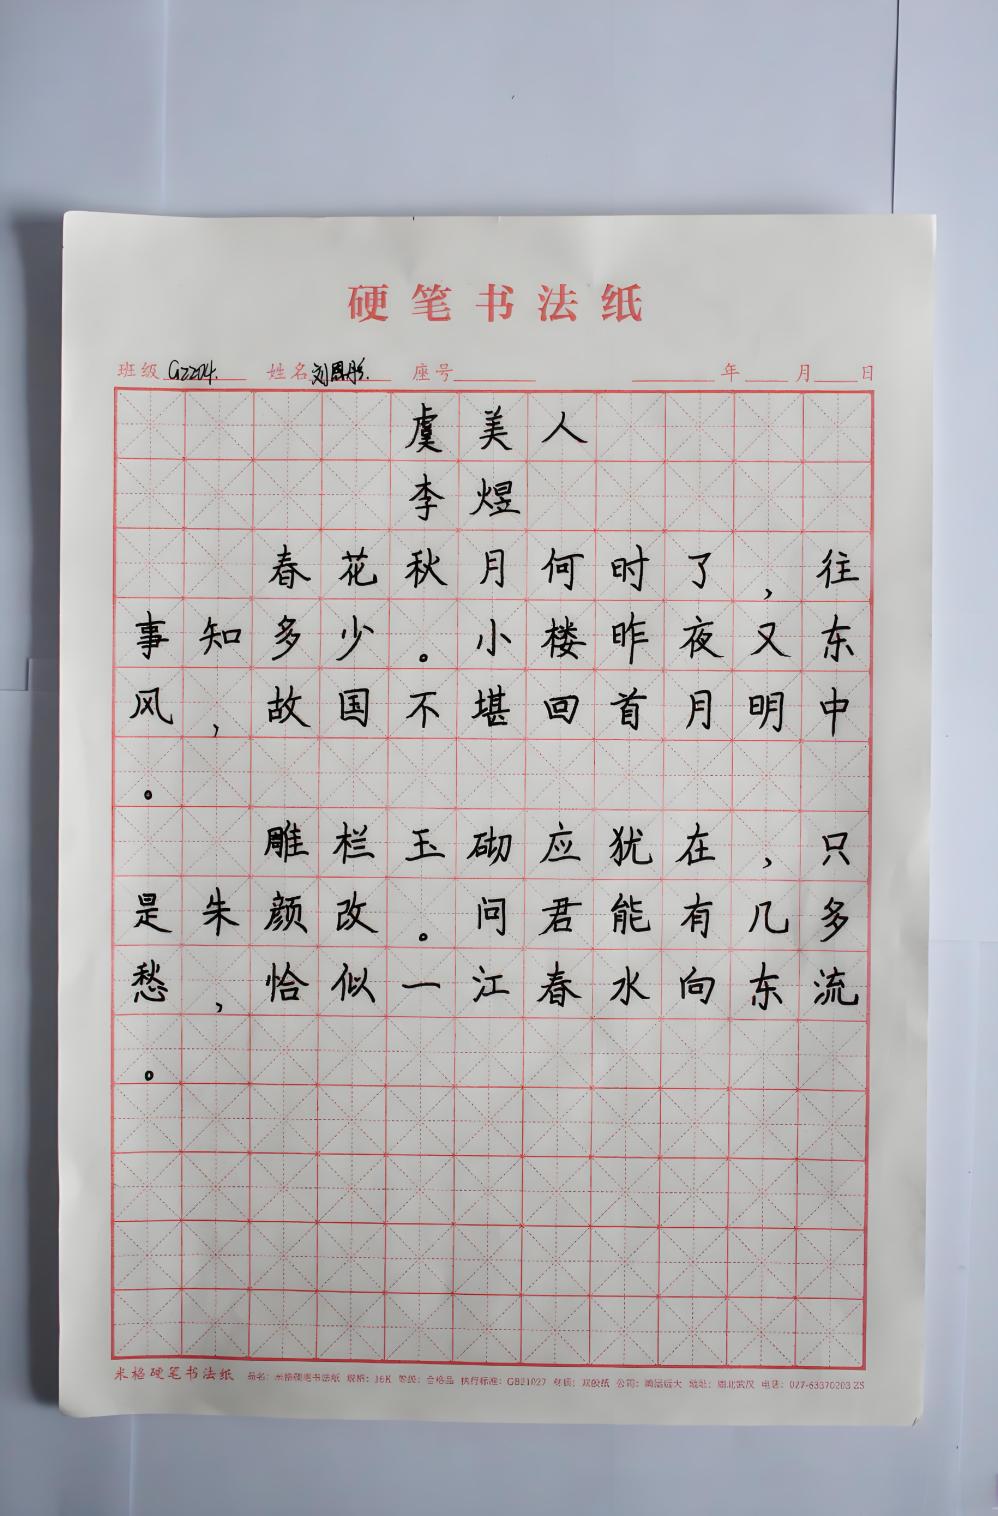 硬笔书法纸
班级 G2204. 姓名 刘恩彤. 座号 年 月 日
虞美人
李煜
春花秋月何时了,往
事知多少。小楼昨夜又东
风,故国不堪回首月明中
。
雕栏玉砌应犹在,只
是朱颜改。问君能有几多
愁,恰似一江春水向东流
。
米格硬笔书法纸 品名:米格硬笔书法纸 规格:16K 等级:合格品 执行标准:GB21027 材质:双胶纸 公司:鸿运远大 地址:湖北武汉 电话:027-63370203 ZS